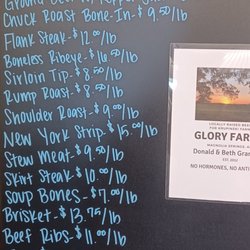 Ground Beef
Chuck Roast Bone-In - $9.50/lb
Flank Steak - $12.00/lb
Boneless Ribeye - $16.50/lb
Sirloin Tip - $8.50/lb
Rump Roast - $8.50/lb
Shoulder Roast - $9.00/lb
New York Strip - $15.00/lb
Stew Meat - $9.50/lb
Skirt Steak - $10.00/lb
Soup Bones - $7.00/lb
Brisket - $13.75/lb
Beef Ribs - $11.00/lb
LOCALLY RAISED
GLORY FAR
MAGNOLIA SPRINGS, A
Donald & Beth Gra
EST. 2022
NO HORMONES, NO ANTI